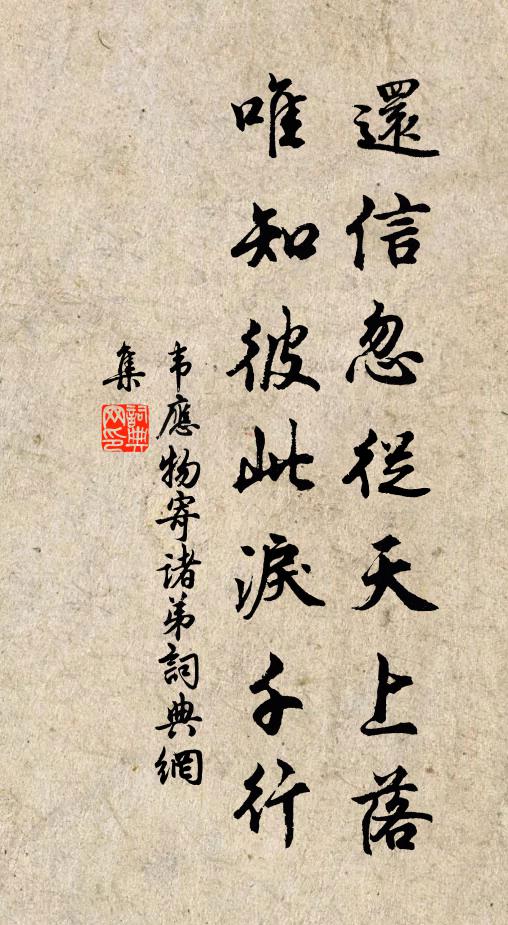 還信忽從天上落
唯知彼此淚千行
韦應物寄诸弟詞典網
集
詞典網印